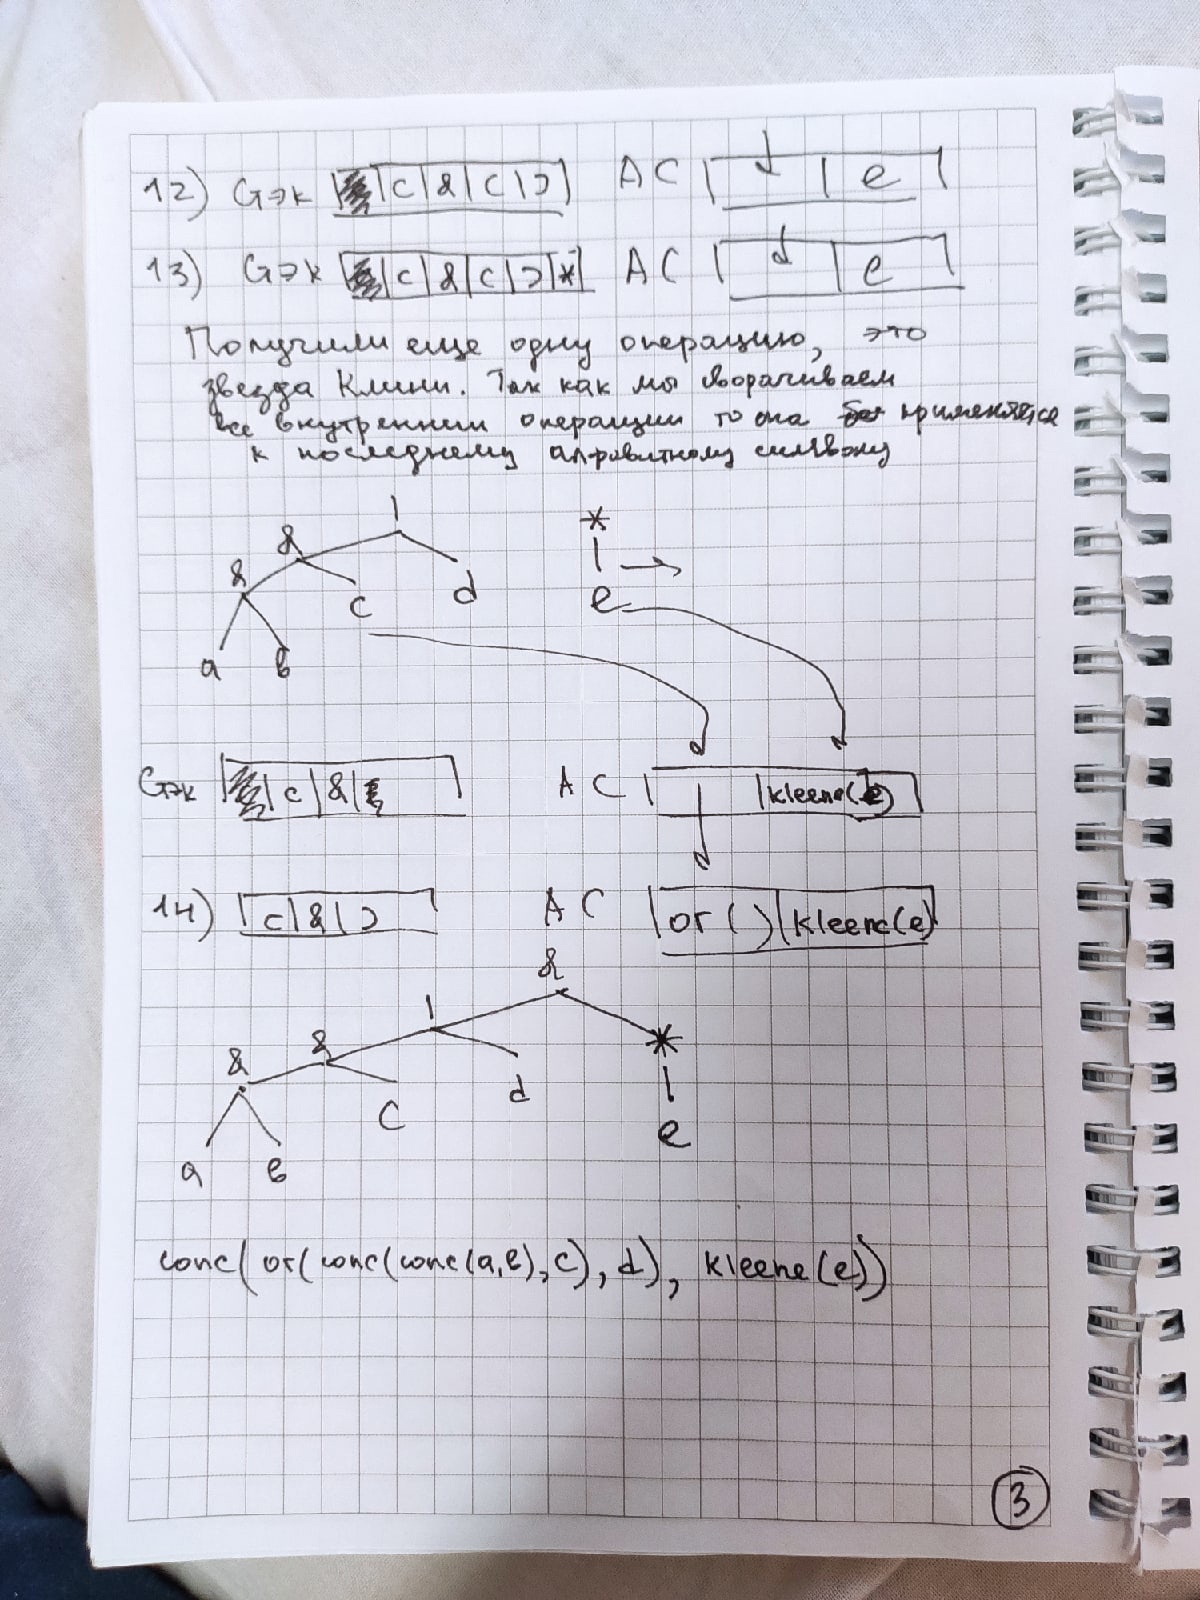 12) Стэк | | c | & | ( | ) | АС | ↓ | e |
13) Стэк | | c | & | ( | ) | * | АС | ↓ | e |
Получили еще одну операцию, это
звезда Клини. Так как мы сворачиваем
все внутренние операции то она применяется
к последнему алфавитному символу
| *
&
& c d e
a b
Стэк | | c | & | АС | | kleene(e) |
14) | c | & | ) | АС | or ( ) | kleene(e) |
&
| *
& & d e
c
a b
conc(or(conc(conc(a,b),c),d), kleene(e))
3